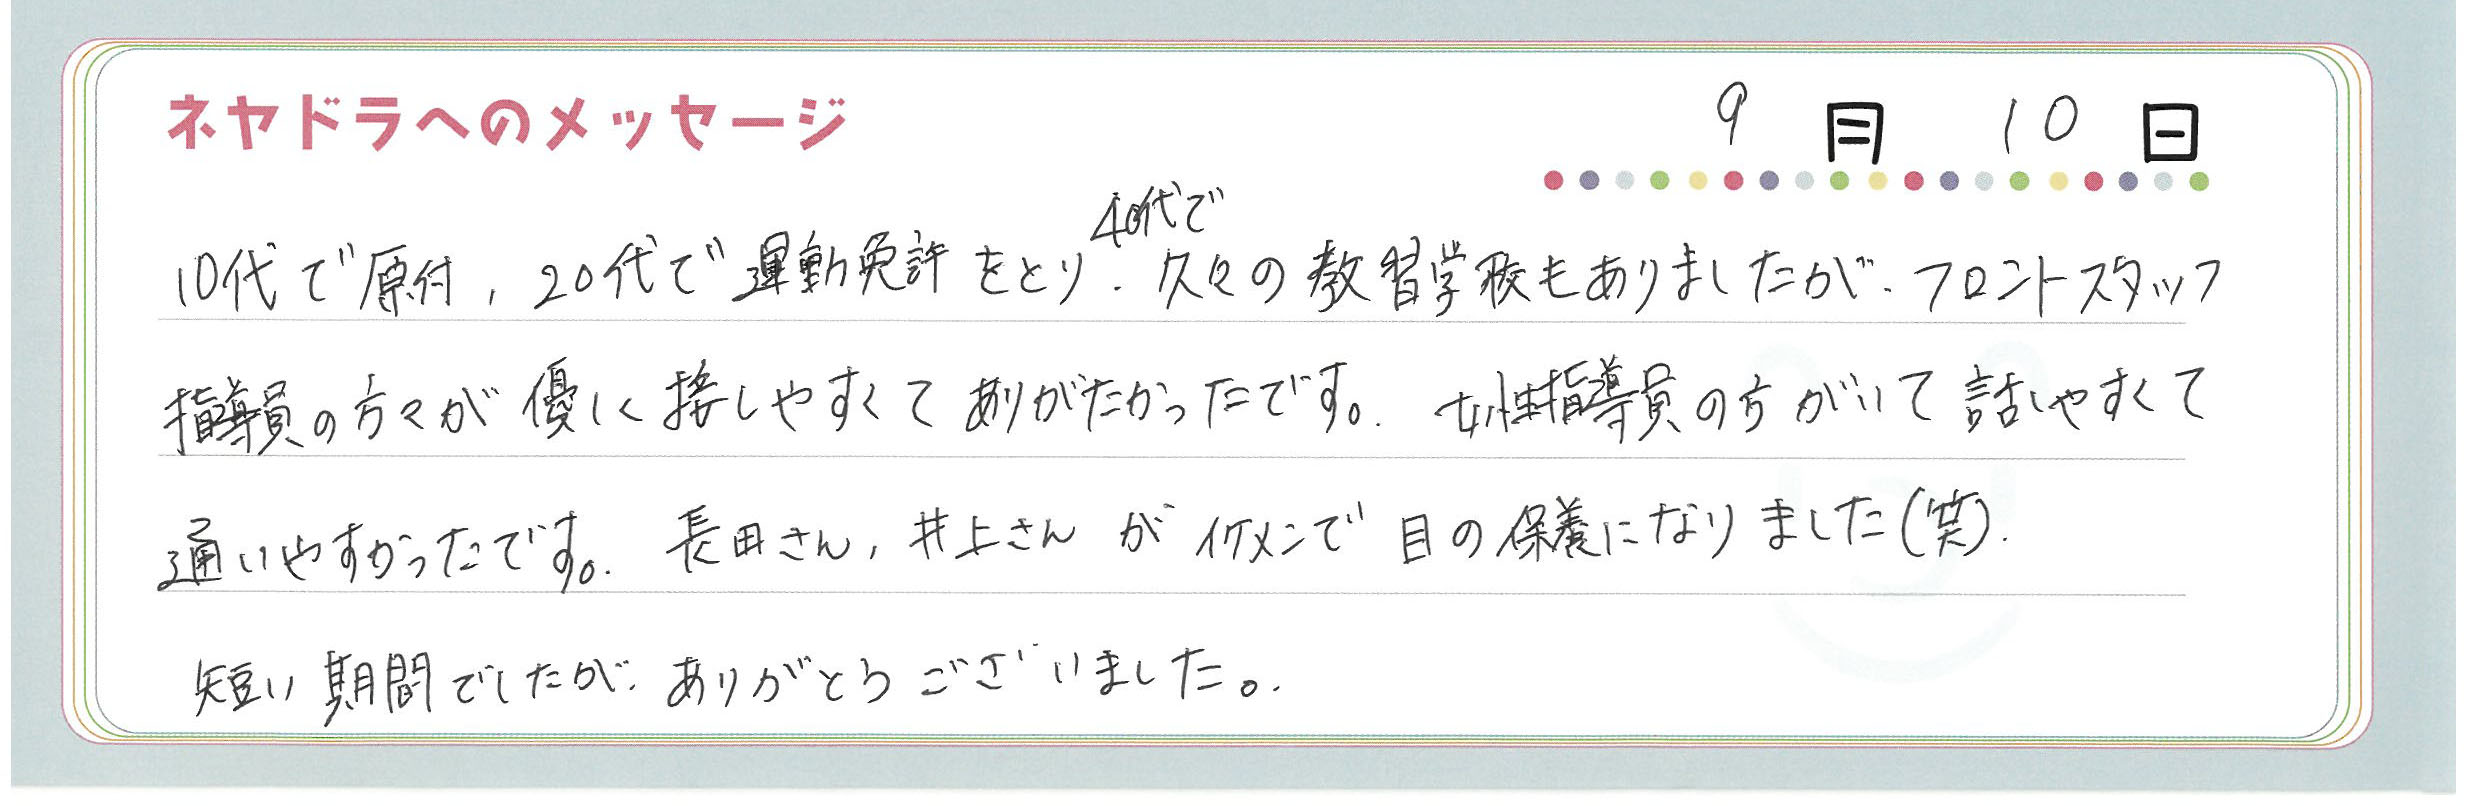 ネヤドラへのメッセージ
9月 10日
40代で
10代で原付、20代で運動免許をとり、久々の教習学校もありましたが、フロントスタッフ
指導員の方々が優しく接しやすくてありがたかったです。女性指導員の方がいて話しやすくて
通いやすかったです。長田さん、井上さんがイケメンで目の保養になりました(笑)。
短い期間でしたが、ありがとうございました。